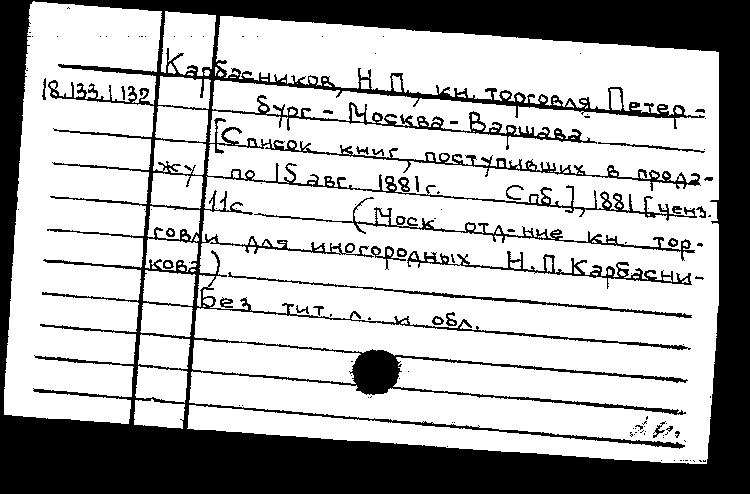 Карбасников, Н. П., кн. торговля. Петер-
18.133.1.132
бург - Москва - Варшава.
[Список книг, поступивших в прода-
жу по 15 авг. 1881 г. Спб.], 1881 [ценз.]
11 с. (Моск. отд-ние кн. тор-
говли для иногородных Н. П. Карбасни-
кова).
Без тит. л. и обл.